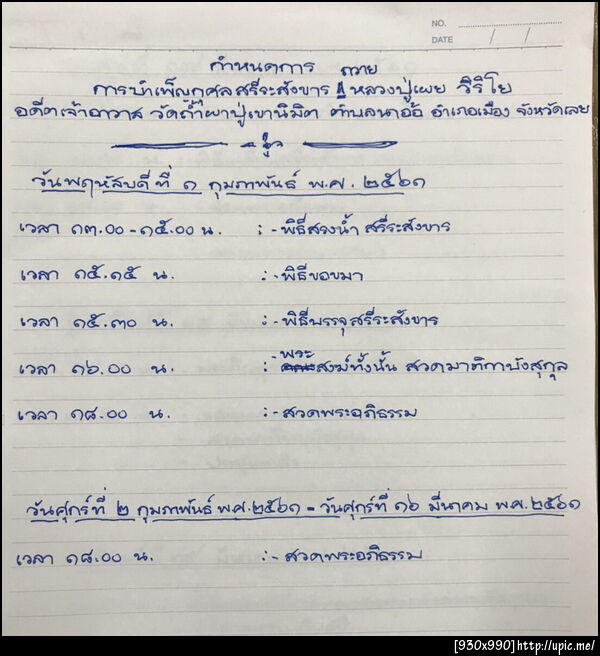 NO.
DATE / /
กำหนดการ
การบำเพ็ญกุศลสรีระสังขาร ถวาย หลวงปู่เผย วิริโย
อดีตเจ้าอาวาส วัดถ้ำผาปู่เขานิมิต ตำบลนาอ้อ อำเภอเมือง จังหวัดเลย
วันพฤหัสบดีที่ ๑ กุมภาพันธ์ พ.ศ. ๒๕๖๑
เวลา ๑๓.๐๐ - ๑๕.๐๐ น. :- พิธีสรงน้ำ สรีระสังขาร
เวลา ๑๕.๑๕ น. :- พิธีขอขมา
เวลา ๑๕.๓๐ น. :- พิธีบรรจุสรีระสังขาร
เวลา ๑๖.๐๐ น. :- พระสงฆ์ทั้งนั้น สวดมาติกาบังสุกุล
เวลา ๑๘.๐๐ น. :- สวดพระอภิธรรม
วันศุกร์ที่ ๒ กุมภาพันธ์ พ.ศ. ๒๕๖๑ - วันศุกร์ที่ ๑๖ มีนาคม พ.ศ. ๒๕๖๑
เวลา ๑๘.๐๐ น. :- สวดพระอภิธรรม
[930x990] http://upic.me/